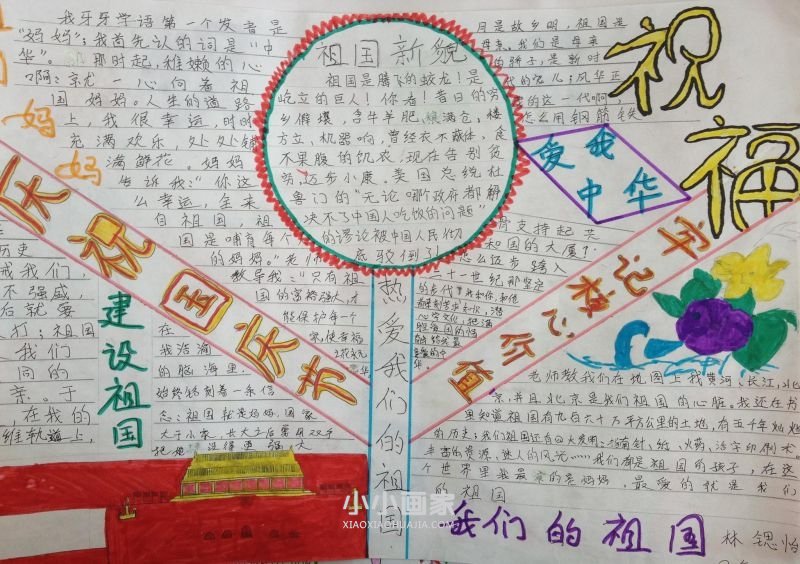 我牙牙学语第一个发音是
"妈妈"；我首先认的词是"中
华"。那时起，稚嫩的心
啊：就一心向着祖
国妈妈。人生的道路
上，我很幸运，时时
充满欢乐，处处铺
满鲜花。妈妈
告诉我："你这
么幸运，全来
自祖国，祖
国是哺育每个
的妈妈。"老师
教导我："只有祖
国的富裕强大，才
能保护每一个
在
我浩瀚
的脑海里，
始终铭刻着一条信
念：祖国就是妈妈，国家
妈
妈
祖国新貌
祖国是腾飞的蛟龙！是
屹立的巨人！你看！昔日的穷
乡僻壤，告牛羊肥，绿满仓，楼
方立，机器响，曾经衣不蔽体，食
不果腹的饥农，现在告别贫
穷，迈步小康。美国总统杜
鲁门的"无论哪个政府都解
决不了中国人吃饭的问题"
的谬论被中国人民彻
底驳倒了！
月是故乡明，祖国是
母亲。我们是母亲
的骄子，是新时
代的宠儿；风华正
的这一代啊，
怎么用钢筋铁
骨支持起共
和国的大厦？
怎么迈步踏入
二十一世纪那坚定
爱我
中华
祝福
庆祝国庆节
牢记核心价值
热爱我们的祖国
建设祖国
历史
戒我们，
不强盛，
后就要
打；祖国
我们
同的
亲。于
，在我的
老师教我们在地图上找黄河、长江，北
京，并且北京是我们祖国的心脏。我还在书
里知道祖国有九百六十万平方公里的土地，有五千年灿烂
的历史；我们祖国还有四大发明：指南针、纸、火药、活字印刷术
丰富的资源，迷人的风光……我们都是祖国的孩子，在这
个世界里我最亲的是妈妈，最爱的就是我们
的祖国
我们的祖国
林锶怡
小小画家
XIAOXIAOHUAJIA.COM